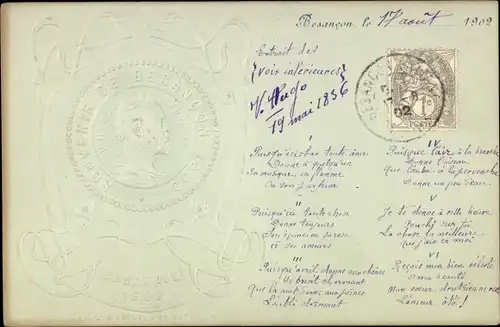 Besançon, le 17 août 1902
Extrait des
{Voix intérieures}
V. Hugo
19 mai 1836
SOUVENIR DE BESANÇON
BESANÇON
02
1c
POSTES
I
Puisqu'ici bas toute âme
Donne à quelqu'un
Sa musique, sa flamme
Ou son parfum
II
Puisqu'ici toute chose
Donne toujours
Son épine ou sa rose
à ses amours
III
Puisqu'avril donne aux chênes
Un bruit charmant
Que la nuit donne aux peines
L'oubli dormant
IV
Puisque l'air à la branche
Donne l'oiseau
Que l'aube à la pervenche
Donne un peu d'eau
V
Je te donne à cette heure
Penché sur toi
La chose la meilleure
Que j'aie en moi
VI
Reçois mon bien céleste
O ma beauté
Mon cœur dont rien ne reste
L'amour ôté!